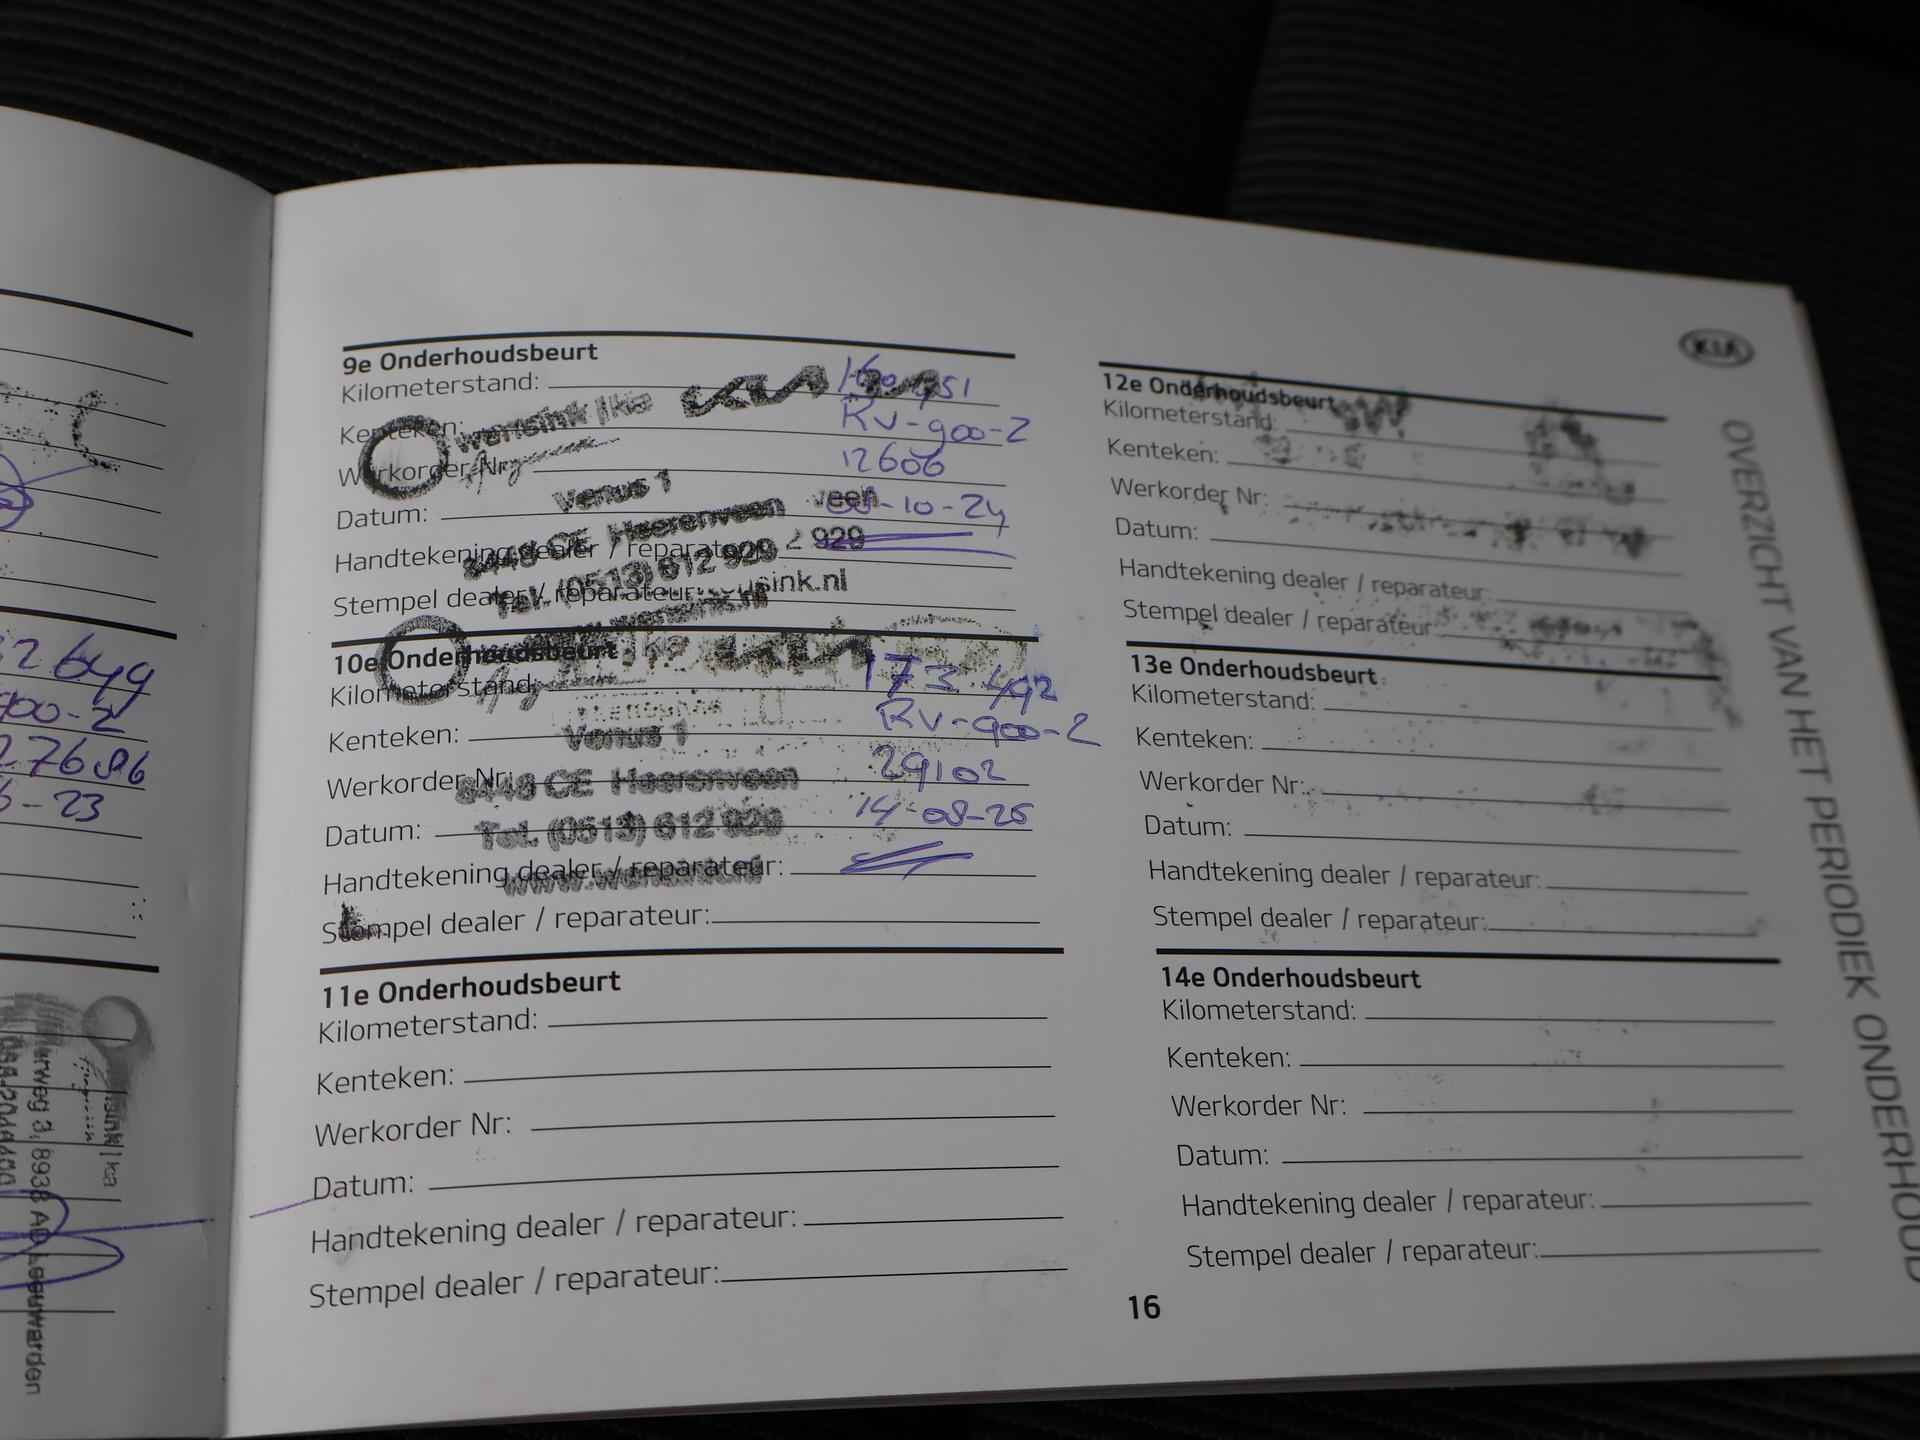 2649
900-2
27696
-23
erweg 3, 8938 AD Leeuwarden
9e Onderhoudsbeurt
Kilometerstand:
Kenteken: RV-900-2
Werkorder Nr: 12606
Datum: -10-24
Handtekening dealer / reparateur:
Stempel dealer / reparateur:
wensink | kia KIA
Venus 1
8448 CE Heerenveen
Tel. (0513) 612 929
10e Onderhoudsbeurt
Kilometerstand: 173.492
Kenteken: RV-900-2
Werkorder Nr: 29102
Datum: 14-08-25
Handtekening dealer / reparateur:
Stempel dealer / reparateur:
Venus 1
8448 CE Heerenveen
Tel. (0513) 612 929
11e Onderhoudsbeurt
Kilometerstand:
Kenteken:
Werkorder Nr:
Datum:
Handtekening dealer / reparateur:
Stempel dealer / reparateur:
12e Onderhoudsbeurt
Kilometerstand:
Kenteken:
Werkorder Nr:
Datum:
Handtekening dealer / reparateur:
Stempel dealer / reparateur:
13e Onderhoudsbeurt
Kilometerstand:
Kenteken:
Werkorder Nr:
Datum:
Handtekening dealer / reparateur:
Stempel dealer / reparateur:
14e Onderhoudsbeurt
Kilometerstand:
Kenteken:
Werkorder Nr:
Datum:
Handtekening dealer / reparateur:
Stempel dealer / reparateur:
KIA
OVERZICHT VAN HET PERIODIEK ONDERHOUD
16